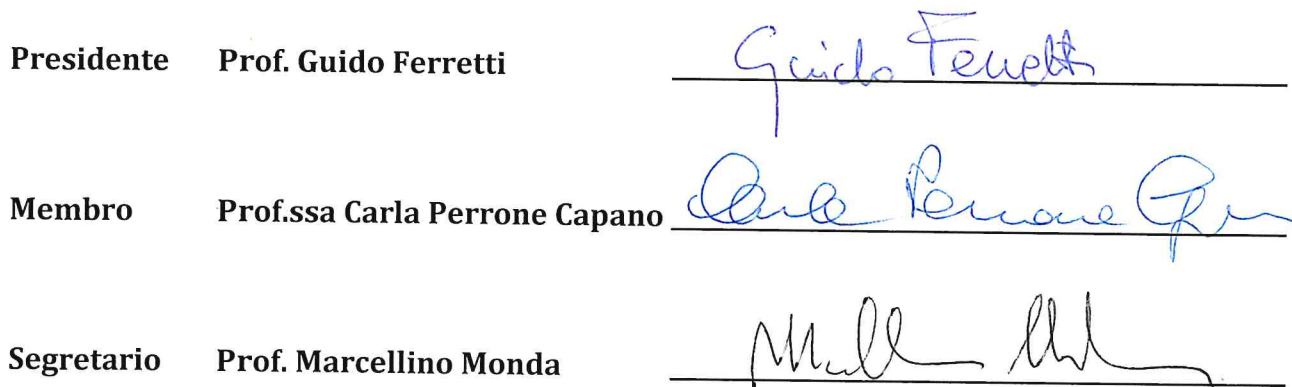 Presidente Prof. Guido Ferretti Guido Ferretti
Membro Prof.ssa Carla Perrone Capano Carla Perrone
Segretario Prof. Marcellino Monda